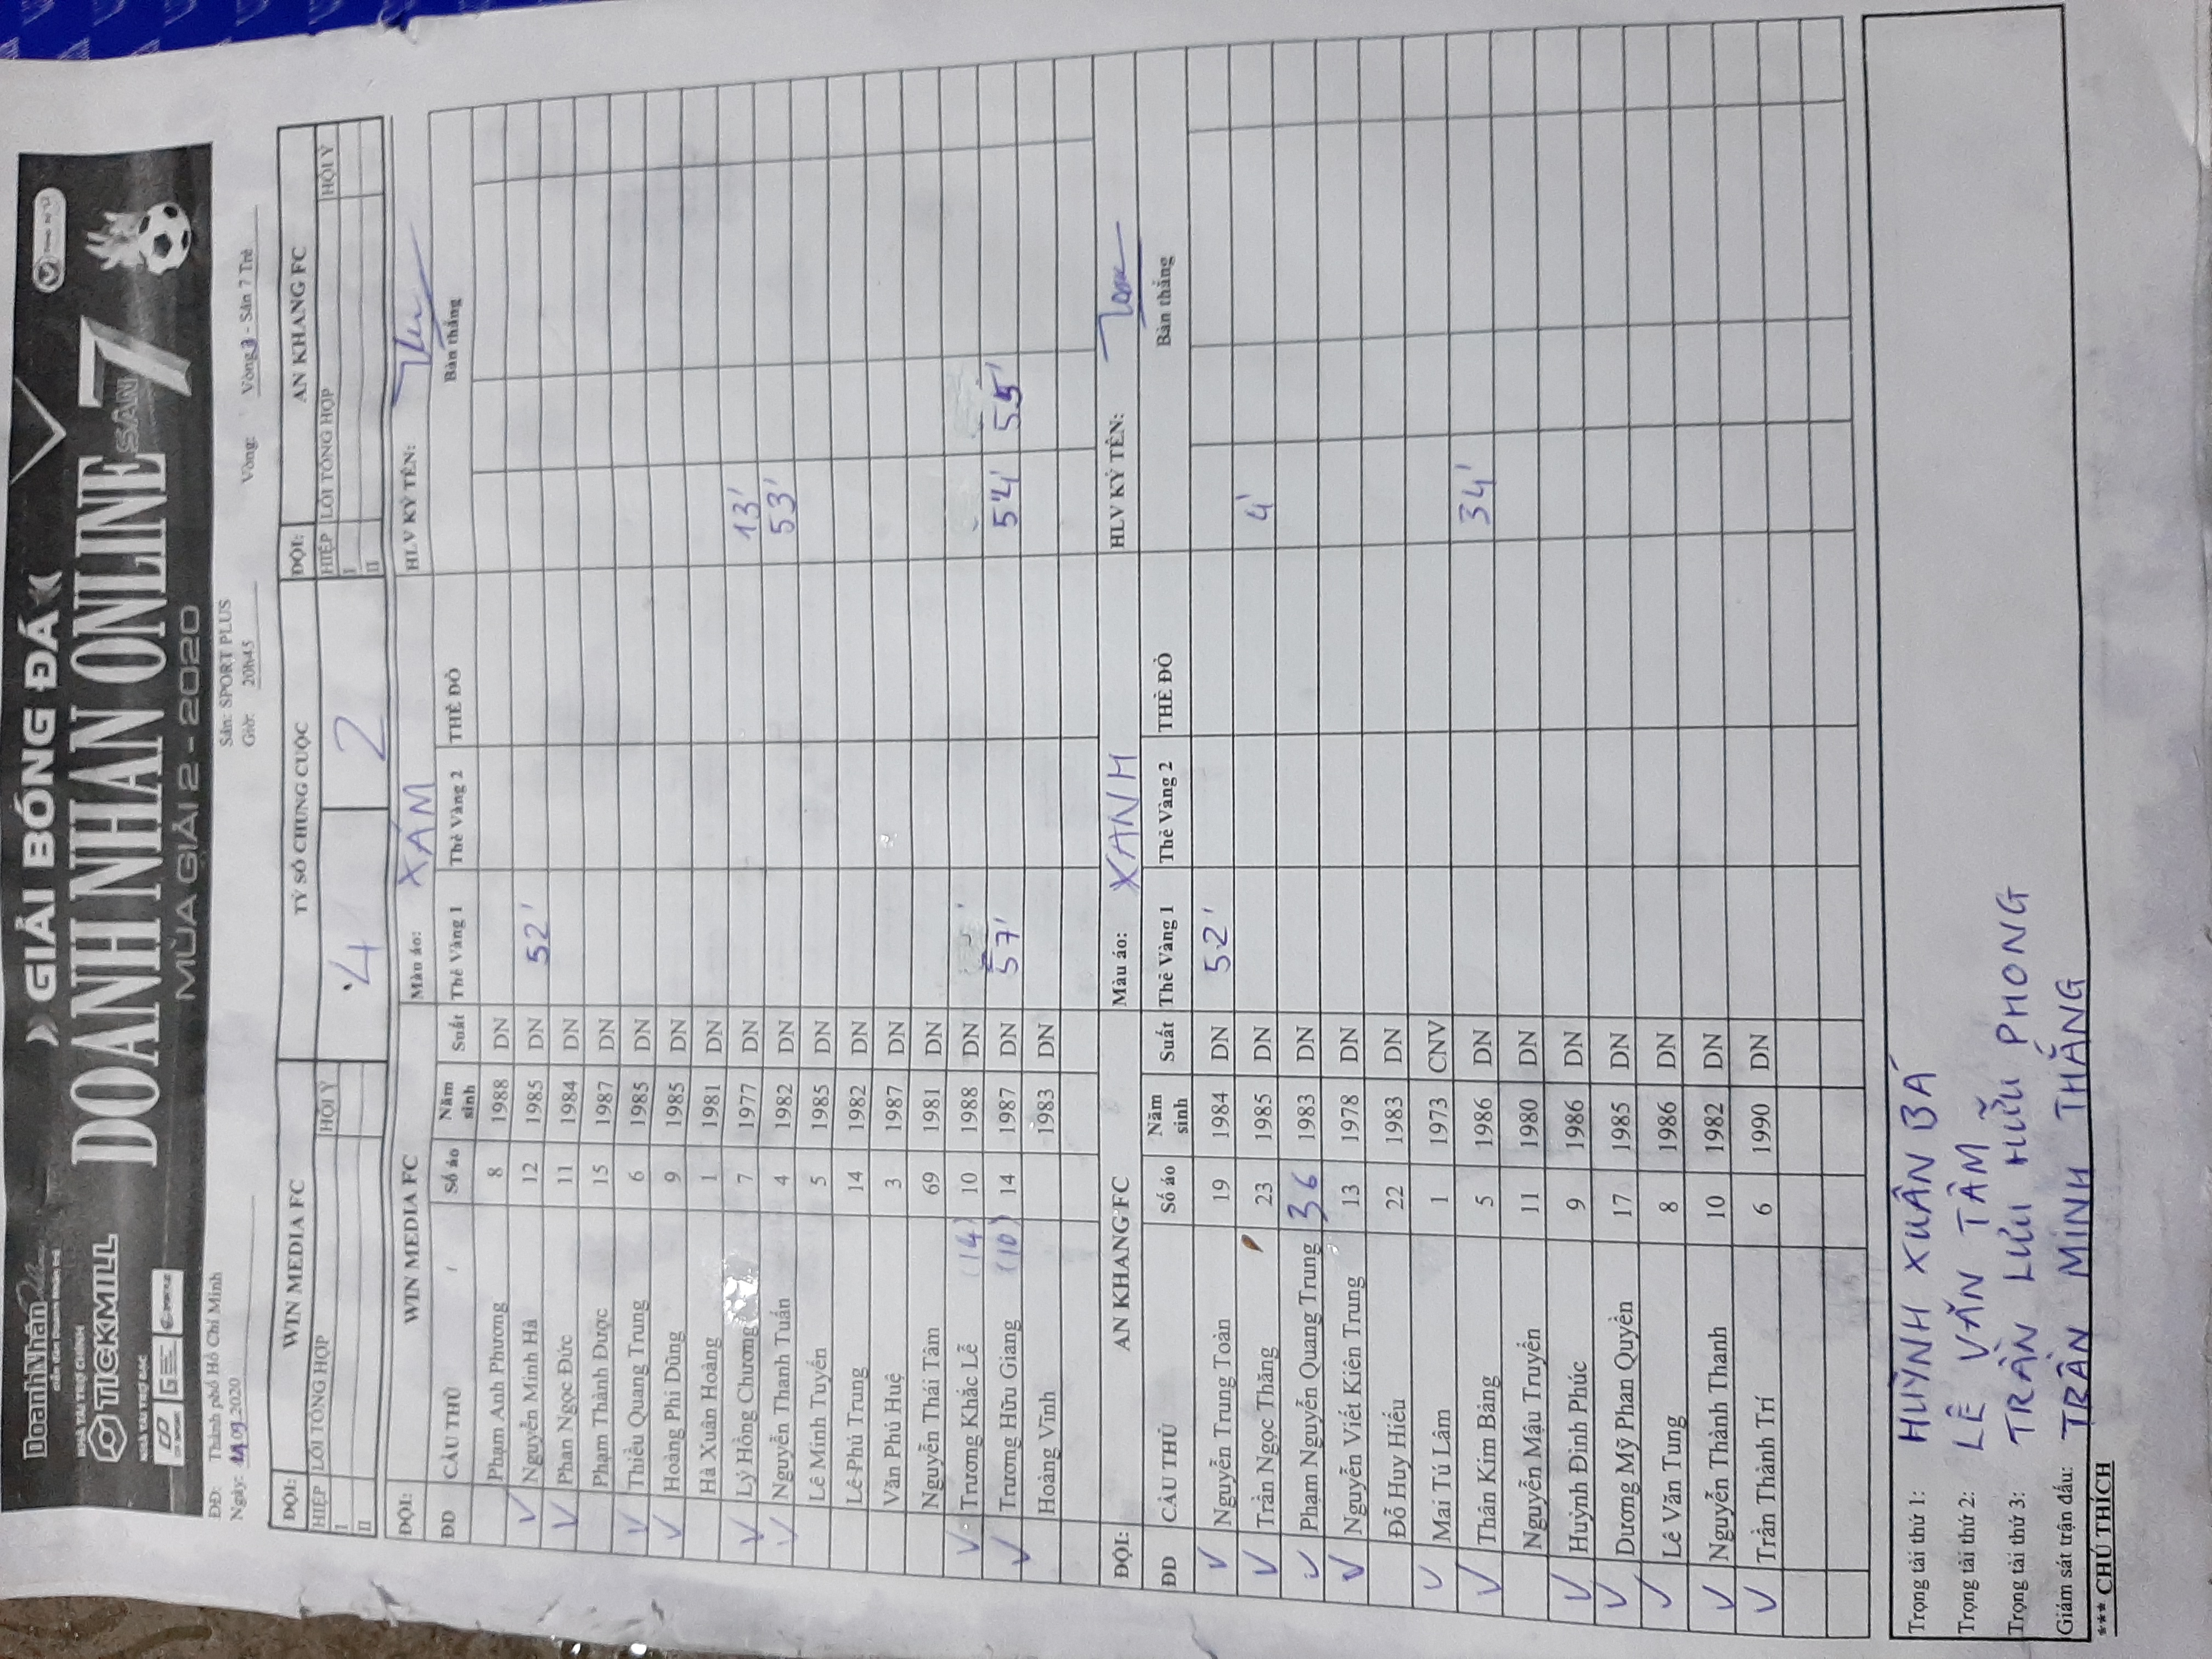 DoanhNhân
DIỄN ĐÀN
NHÀ TÀI TRỢ CHÍNH
TICKMILL
NHÀ TÀI TRỢ BẠC
» GIẢI BÓNG ĐÁ «
DOANH NHÂN ONLINE
SÂN 7
MÙA GIẢI 2 - 2020
ĐĐ: Thành phố Hồ Chí Minh Sân: SPORT PLUS
Ngày: 09.2020 Giờ: 20h45 Vòng: Vòng 3 - Sân 7 Trẻ
ĐỘI: WIN MEDIA FC TỶ SỐ CHUNG CUỘC ĐỘI: AN KHANG FC
HIỆP LỖI TỔNG HỢP HỘI Ý 4 2 HIỆP LỖI TỔNG HỢP HỘI Ý
I I
II II
ĐỘI: WIN MEDIA FC Màu áo: XÁM HLV KÝ TÊN:
ĐD CẦU THỦ Số áo Năm sinh Suất Thẻ Vàng 1 Thẻ Vàng 2 THẺ ĐỎ Bàn thắng
Phạm Anh Phương 8 1988 DN
V Nguyễn Minh Hà 12 1985 DN 52'
V Phan Ngọc Đức 11 1984 DN
Phạm Thành Được 15 1987 DN
V Thiều Quang Trung 6 1985 DN
V Hoàng Phi Dũng 9 1985 DN
Hà Xuân Hoàng 1 1981 DN
V Lý Hồng Chương 7 1977 DN 13'
V Nguyễn Thanh Tuấn 4 1982 DN 53'
Lê Minh Tuyến 5 1985 DN
Lê Phú Trung 14 1982 DN
Văn Phú Huệ 3 1987 DN
Nguyễn Thái Tâm 69 1981 DN
V Trương Khắc Lễ (14) 10 1988 DN
V Trương Hữu Giang (10) 14 1987 DN 57' 54' 55'
Hoàng Vĩnh 1983 DN
ĐỘI: AN KHANG FC Màu áo: XANH HLV KÝ TÊN:
ĐD CẦU THỦ Số áo Năm sinh Suất Thẻ Vàng 1 Thẻ Vàng 2 THẺ ĐỎ Bàn thắng
V Nguyễn Trung Toàn 19 1984 DN 52'
V Trần Ngọc Thăng 23 1985 DN 4'
V Phạm Nguyễn Quang Trung 36 1983 DN
V Nguyễn Viết Kiên Trung 13 1978 DN
Đỗ Huy Hiếu 22 1983 DN
V Mai Tú Lâm 1 1973 CNV
V Thân Kim Bảng 5 1986 DN 34'
Nguyễn Mậu Truyền 11 1980 DN
V Huỳnh Đình Phúc 9 1986 DN
V Dương Mỹ Phan Quyền 17 1985 DN
V Lê Văn Tung 8 1986 DN
V Nguyễn Thành Thanh 10 1982 DN
V Trần Thành Trí 6 1990 DN
Trọng tài thứ 1: HUỲNH XUÂN BÁ
Trọng tài thứ 2: LÊ VĂN TÂM
Trọng tài thứ 3: TRẦN LƯU HỮU PHONG
Giám sát trận đấu: TRẦN MINH THẮNG
*** CHÚ THÍCH